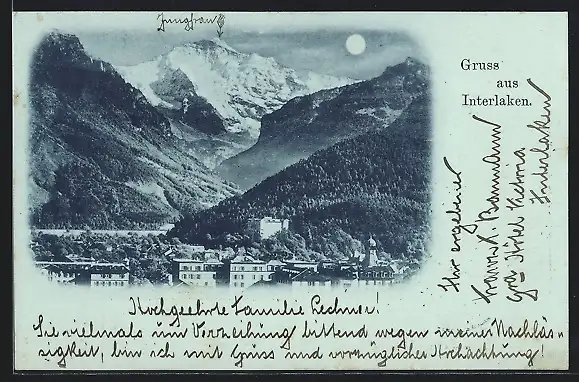 Jungfrau
Gruss
aus
Interlaken.
Hochgeehrte Familie Lechner!
Sie vielmals um Verzeihung bittend wegen meiner Nachläs-
sigkeit, bin ich mit Gruss und vorzüglicher Hochachtung!
Ihr ergebener
Baumann
Hôtel Victoria
Interlaken